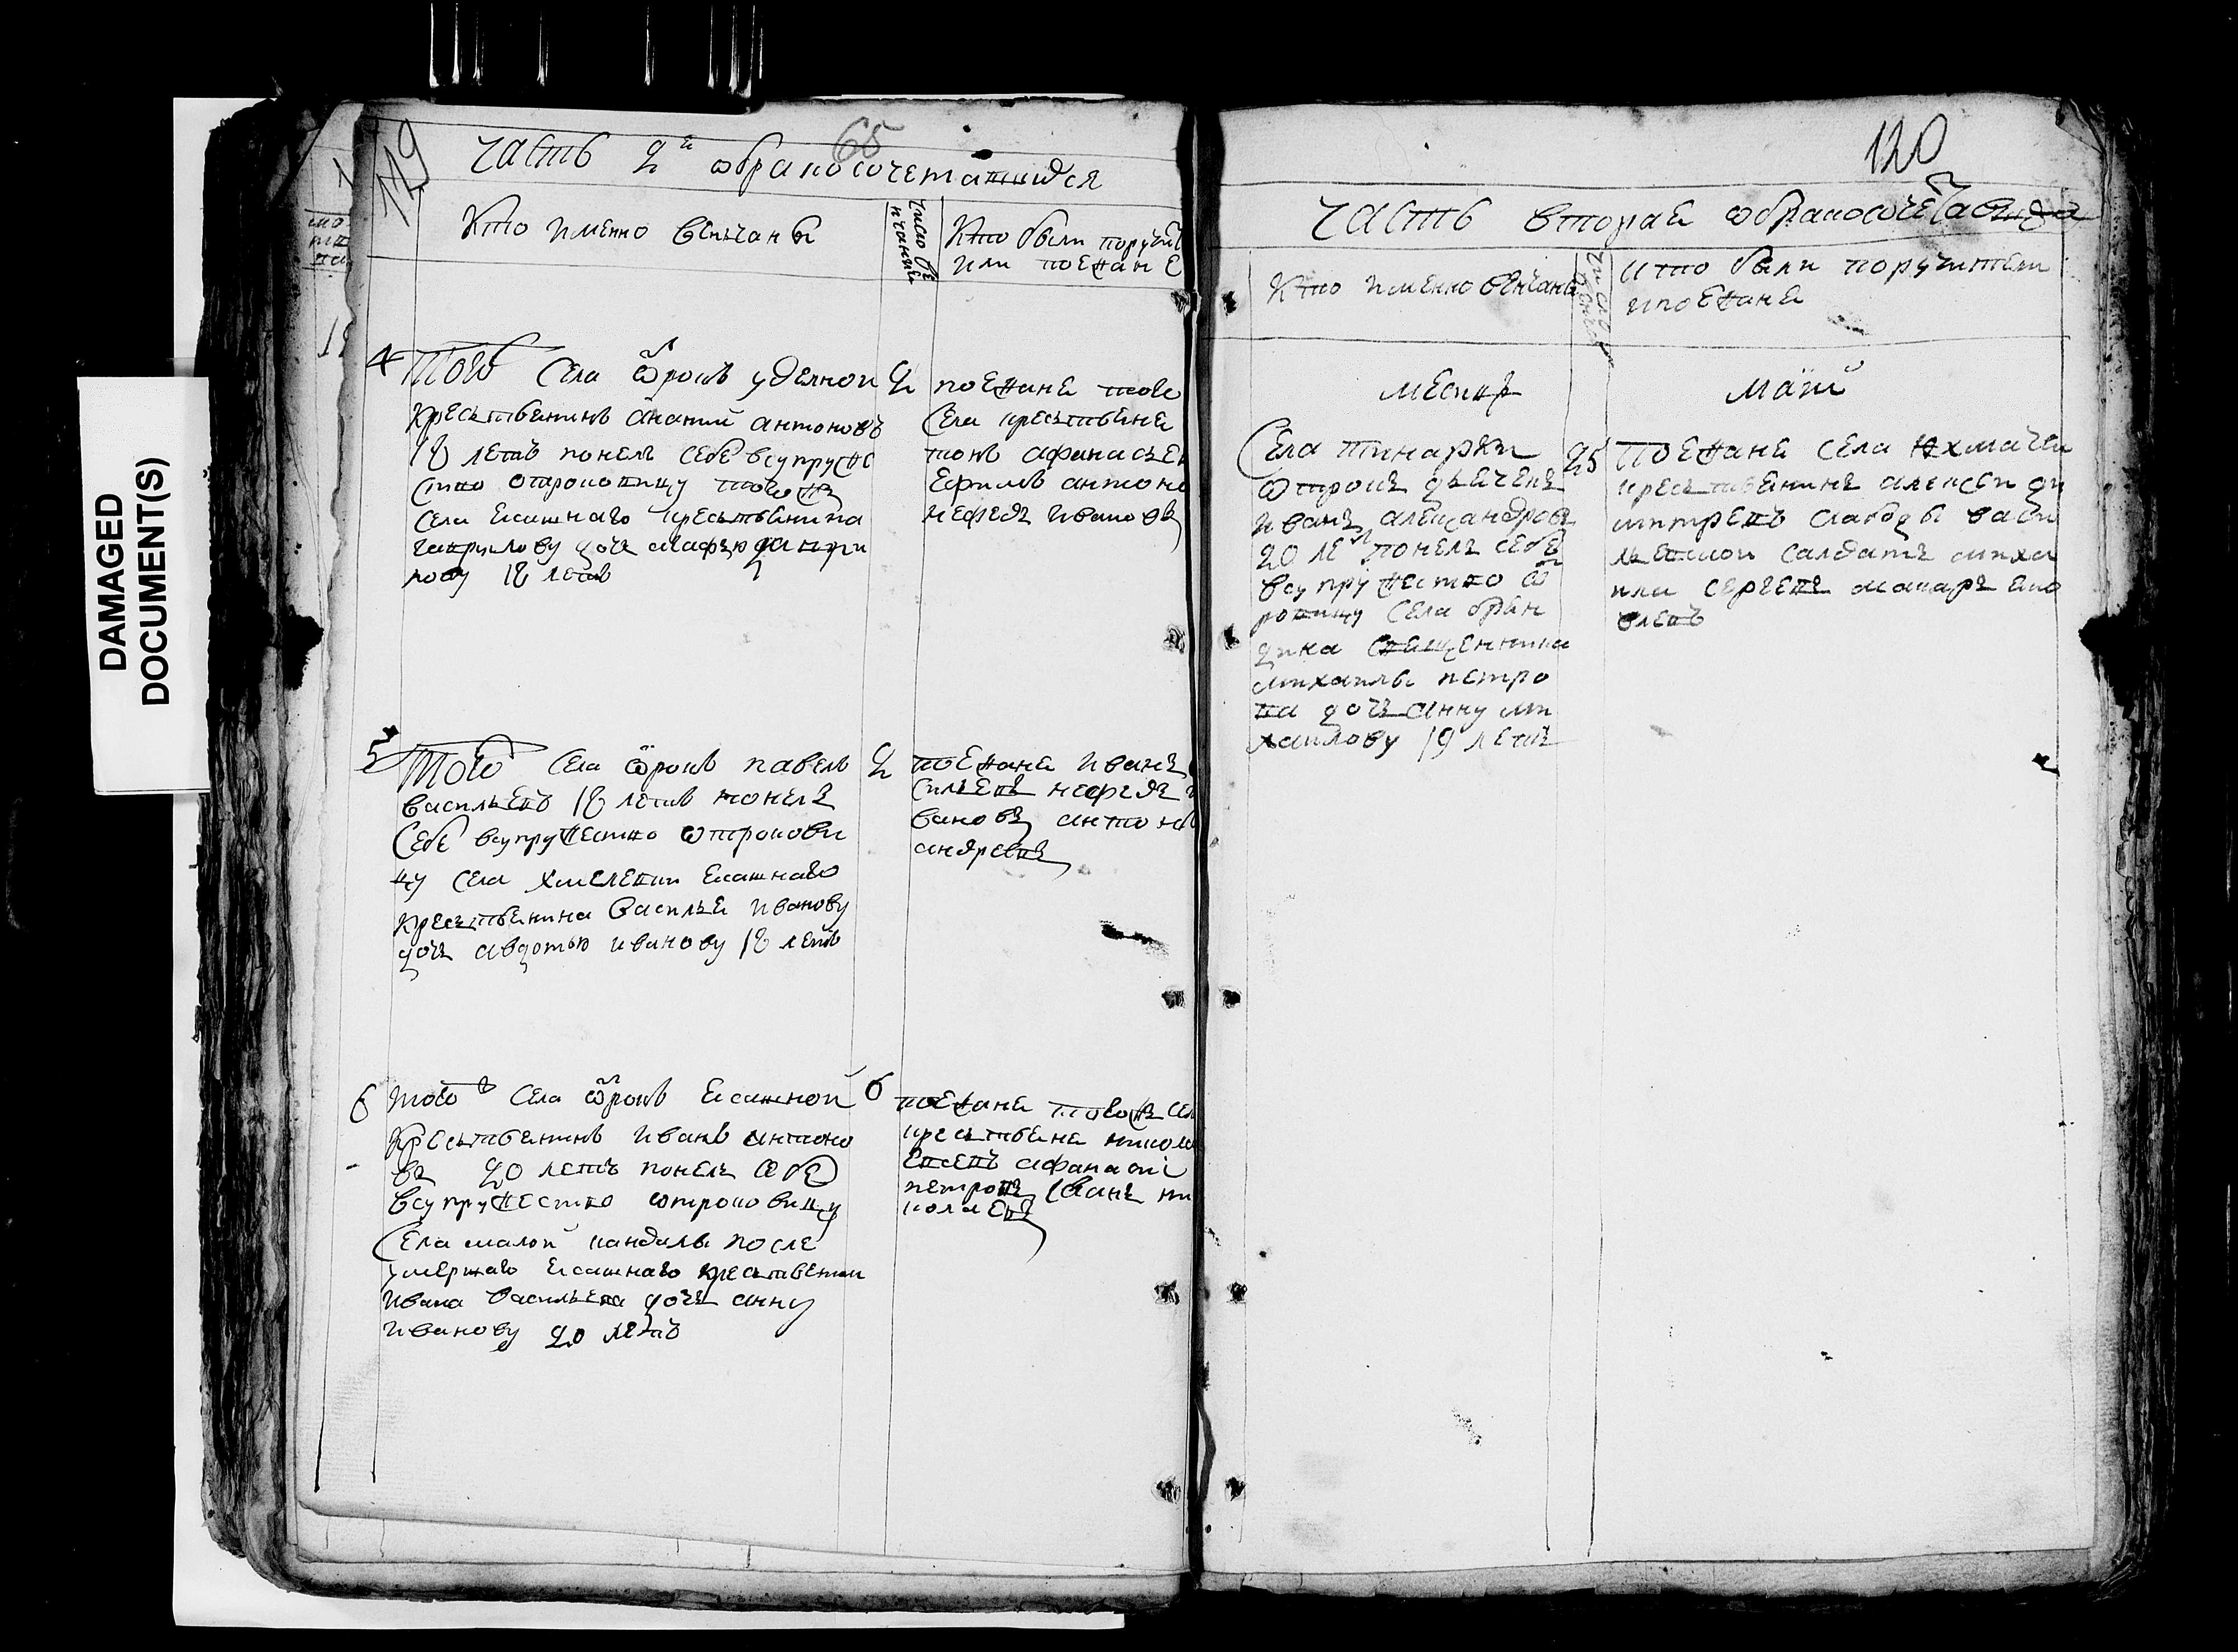 DAMAGED
DOCUMENT(S)
119
65
часть 2й о бракосочетавшихся
кто именно венчаны
число венчание
кто были поручит
или поезжане
4
того села отрокъ уделной
крестьвенинъ ананий антоновъ
18 летъ понелъ себе в супруже
ство отроковицу того же
села ясашнаго крестьвенина
гаврилову дочь агафью гаври
лову 18 летъ
2
поезжане того
села крестьвене
тонъ афанасьев
ефимъ антоно
нефедъ ивановъ
5
того села отрокъ павелъ
васильевъ 18 летъ понелъ
себе в супружество отрокови
цу села хмелевки ясашнаго
крестьвенина василья иванову
дочь авдотью иванову 18 летъ
2
поезжане иванъ
сильевъ нефедъ и
вановъ антонъ
андреевъ
6
того села отрокъ ясашной
крестьвенинъ иванъ антоно
въ 20 летъ понелъ себе
в супружество отроковицу
села малой кандалы после
умершаго ясашнаго крестьвенин
ивана васильева дочь анну
иванову 20 летъ
6
поезжане того же сел
крестьвене никола
евсевъ афанасий
петровъ иванъ ни
колаевъ
120
часть вторая о бракосочетавшихся
кто именно венчаны
число венча
кто были поручители
и поезжане
месяцъ
май
села тинарки
отрокъ дьяченъ
иванъ александровъ
20 летъ понелъ себе
в супружество от
ровицу села брян
дина священника
михаилы петро
ва дочь анну ми
хаилову 19 летъ
25
поезжане села
крестьвенинъ алексеи ди
митревъ слабоды васи
льевской салдатъ миха
ила сергеевъ макаръ яко
влевъ